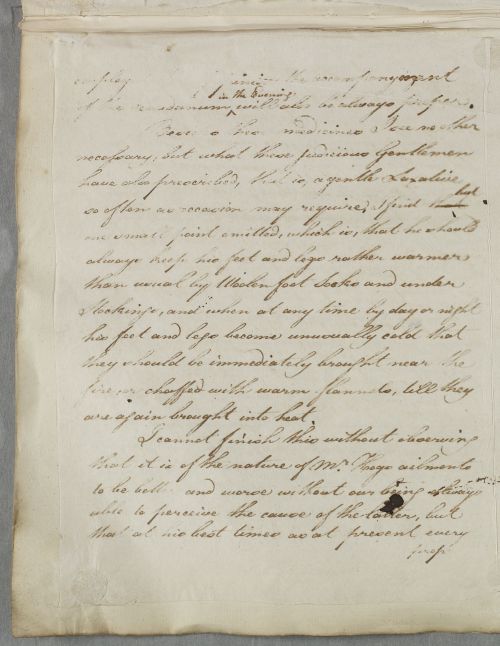 employ the accompanyment
in the Evening
of the Laudanum, will also be always proper.
these medicines I see no other
necessary, but what these judicious Gentlemen
have also prescribed, that is, a gentle Laxative
so often as occasion may require, I find but
one small point omitted, which is, that he should
always keep his feet and legs rather warmer
than usual by Woolen foot Socks and under
Stockings, and when at any time by day or night
his feet and legs become unusually cold that
they should be immediately brought near the
fire, or chaffed with warm flannels, till they
are again brought into heat.
I cannot finish this without observing
that it is of the nature of Mr. ailments
to be better and worse without our being always
able to perceive the cause of the latter, but
that at his best times as at present every
prop